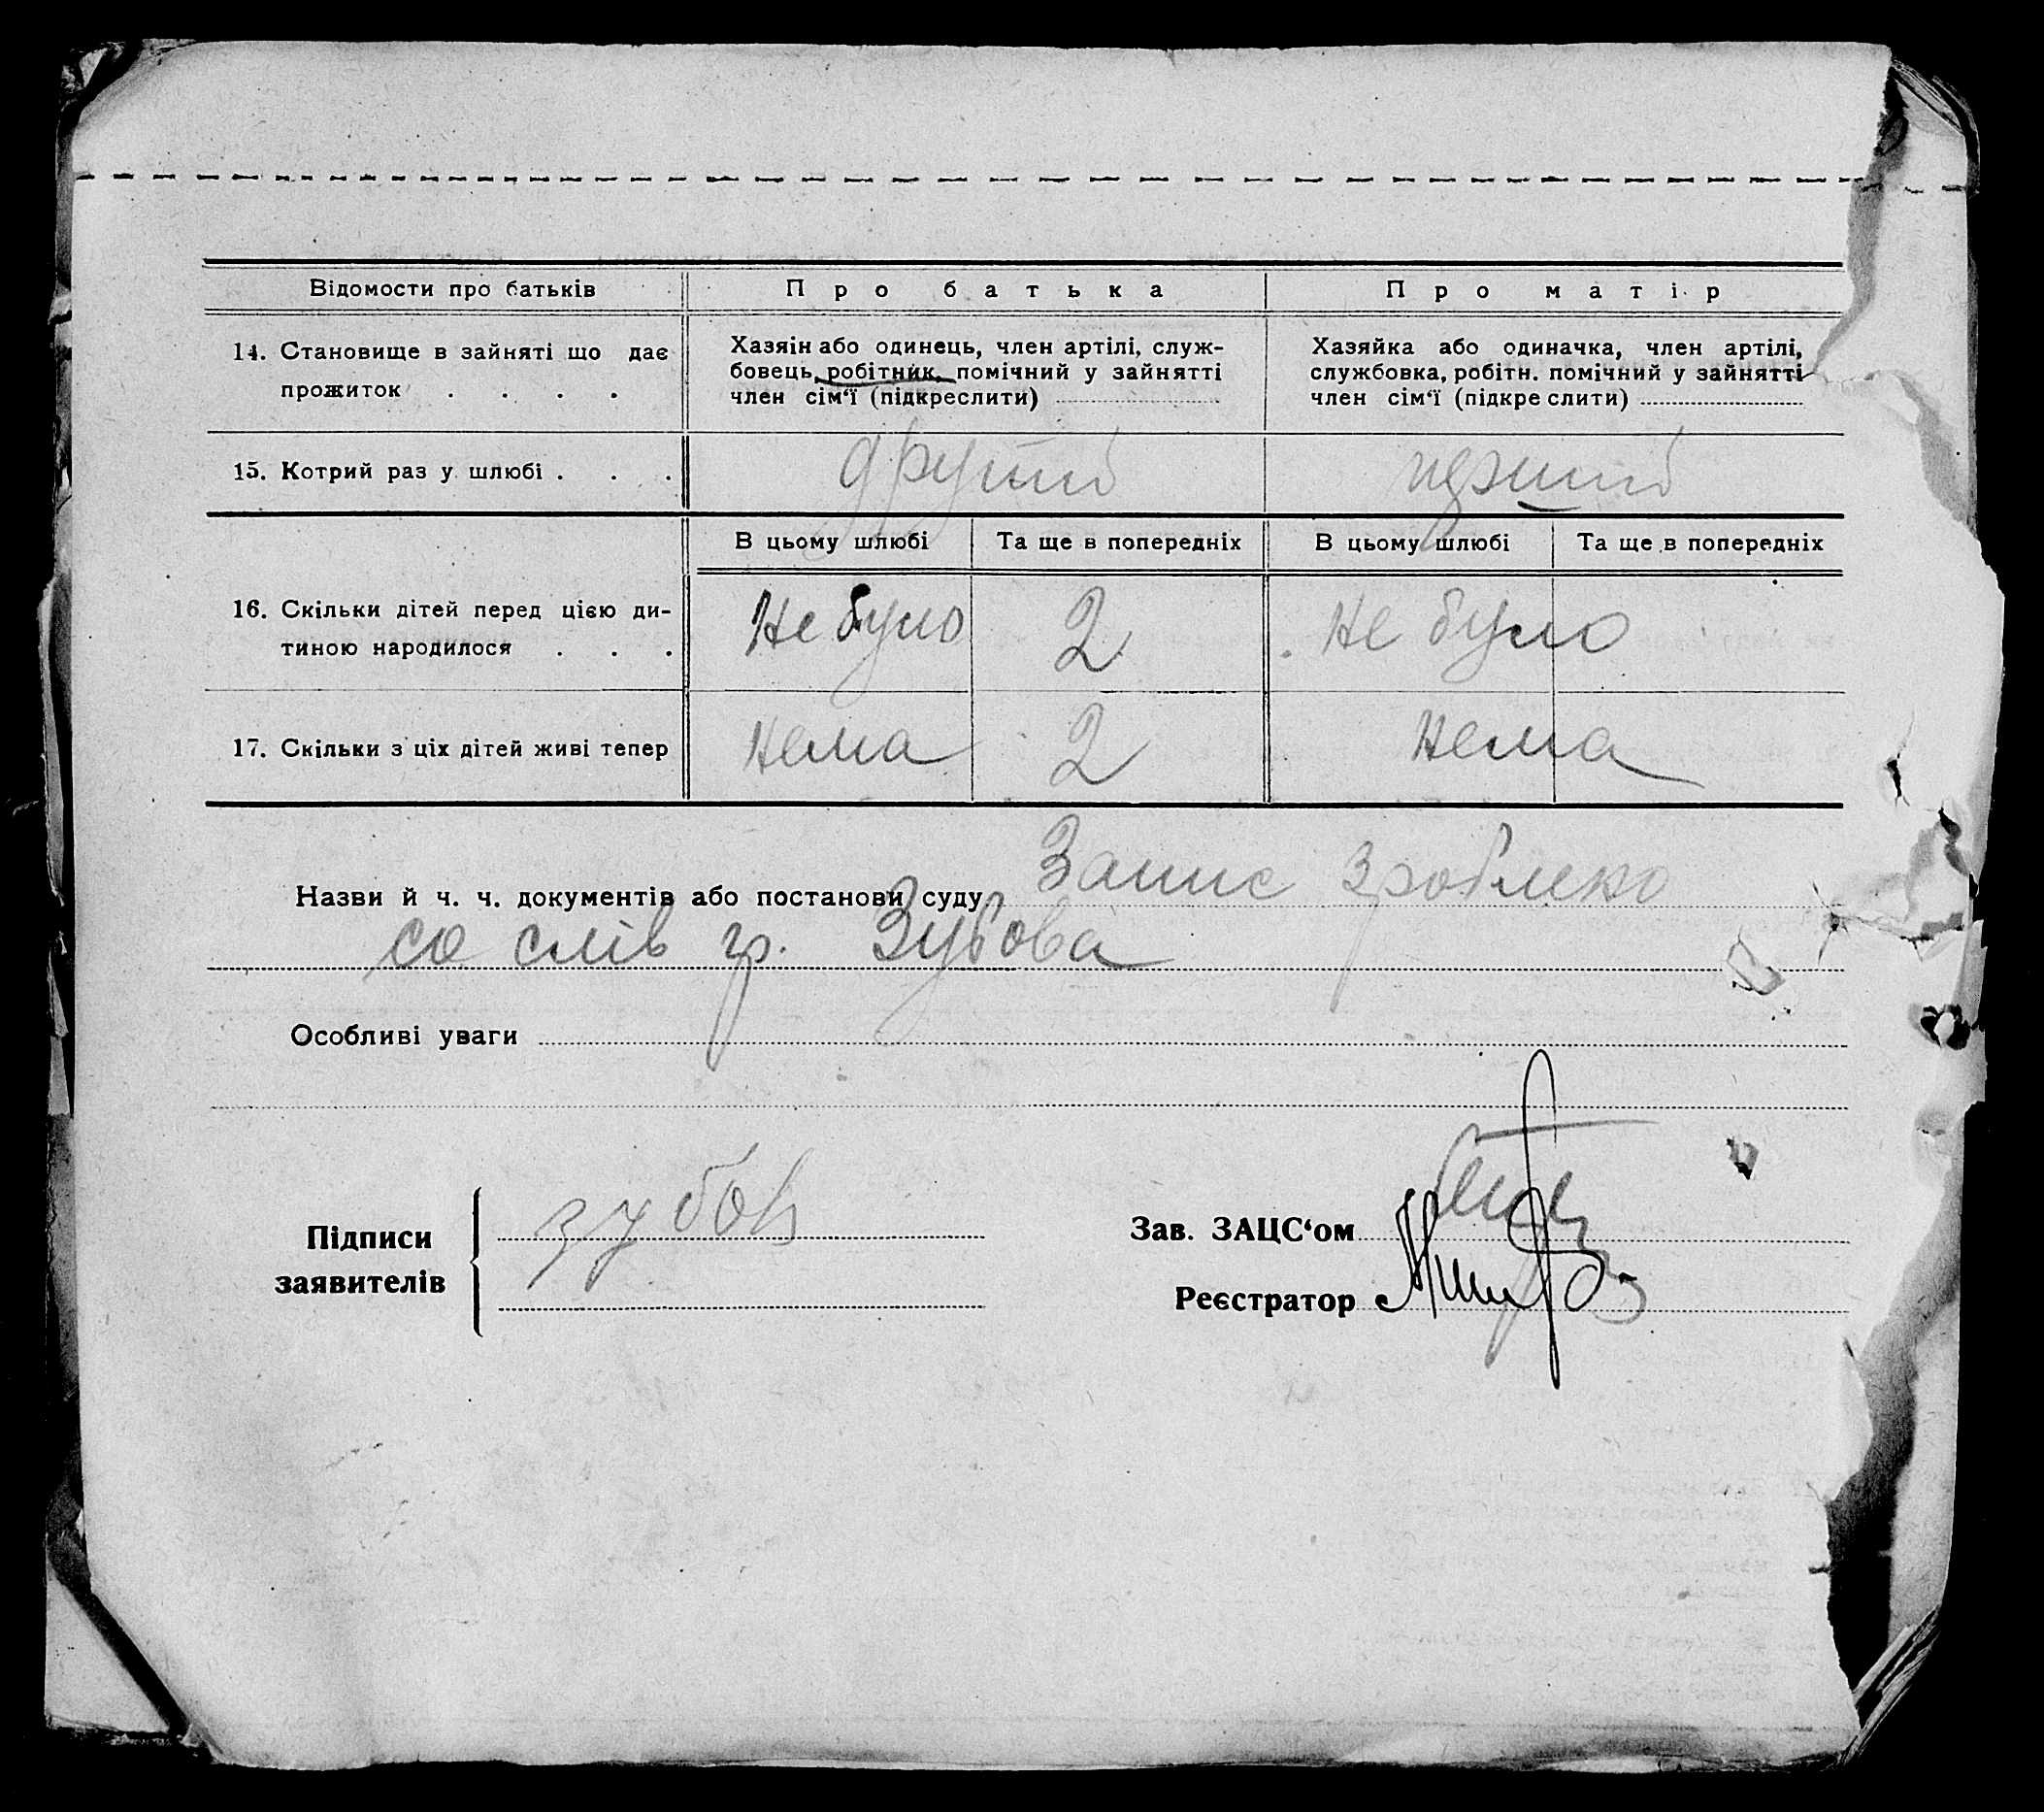 Відомости про батьків Про батька Про матір
14. Становище в зайняті що дає
прожиток . . . .
Хазяін або одинець, член артілі, служ-
бовець, робітник, помічний у зайнятті
член сім‘ї (підкреслити)
Хазяйка або одиначка, член артілі,
службовка, робітн. помічний у зайнятті
член сім‘ї (підкреслити)
15. Котрий раз у шлюбі . . . другий перший
В цьому шлюбі Та ще в попередніх В цьому шлюбі Та ще в попередніх
16. Скільки дітей перед цією ди-
тиною народилося . . .
Не було 2 Не було
17. Скільки з ціх дітей живі тепер Нема 2 Нема
Назви й ч. ч. документів або постанови суду Запис зроблено
со слів гр. Зубова
Особливі уваги
Підписи
заявителів
Зубов
Зав. ЗАЦС‘ом
Реєстратор